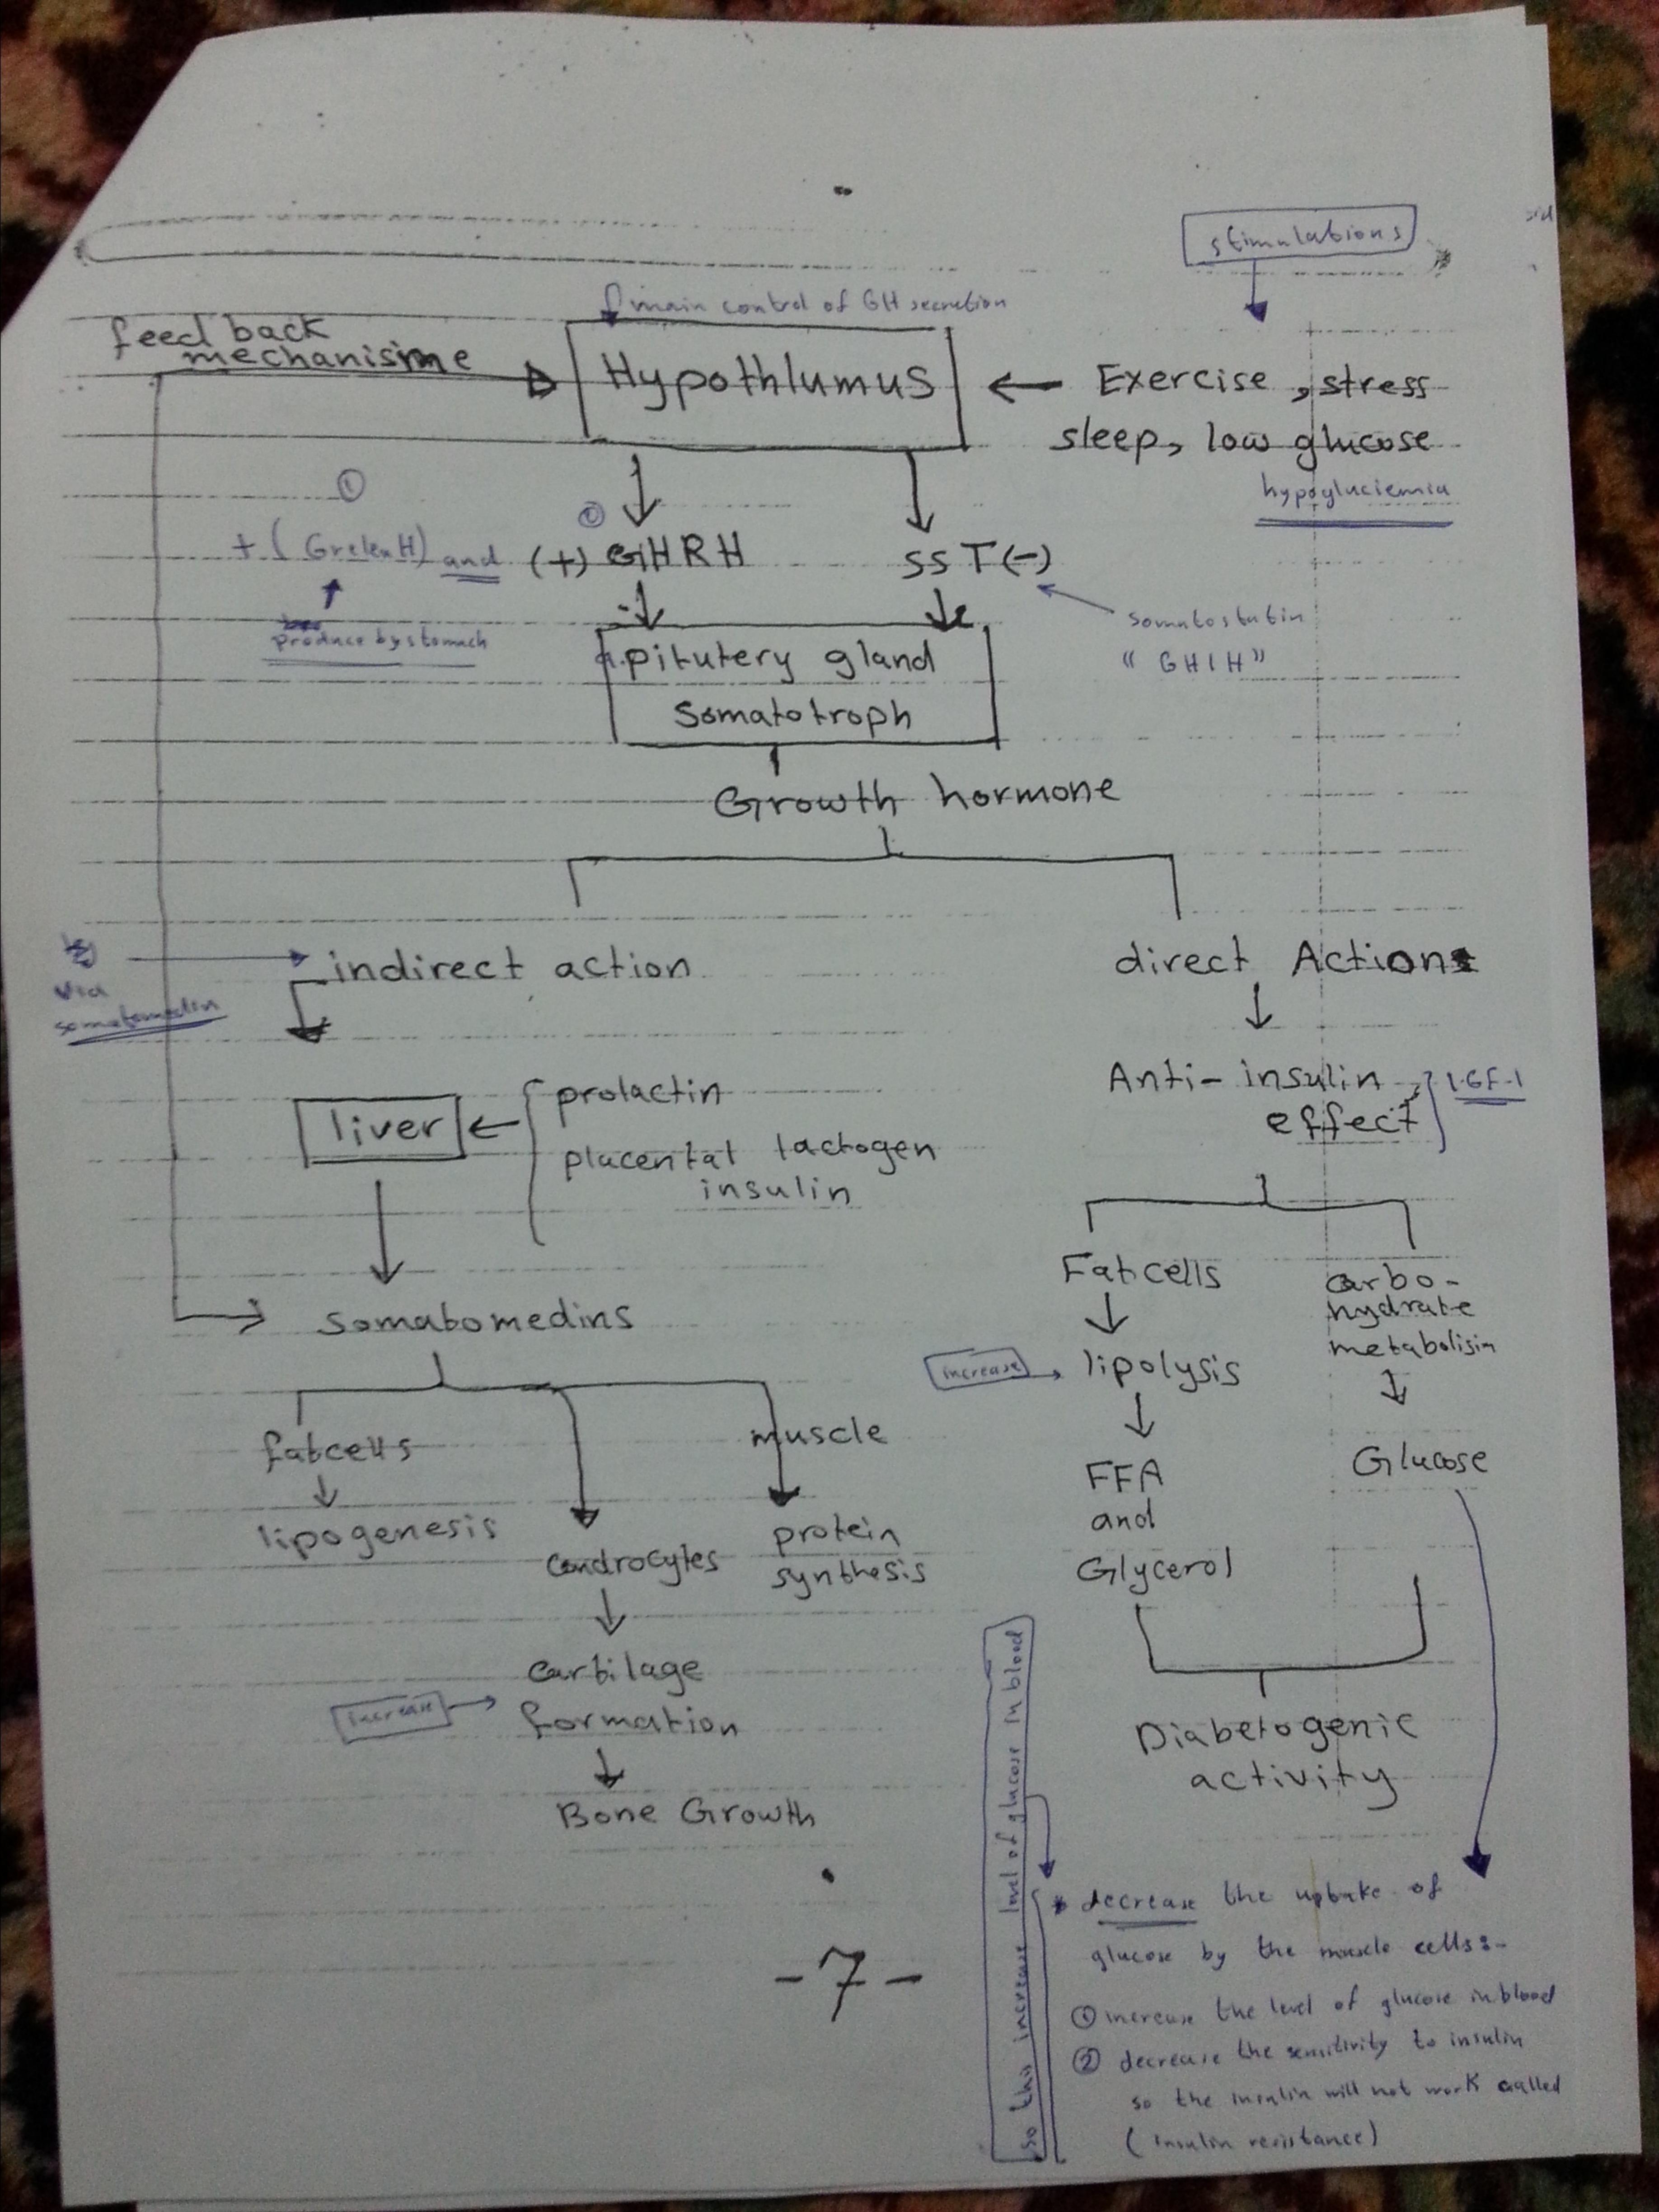 stimulations
main control of GH secretion
feed back
mechanisime
Hypothlumus
Exercise, stress
sleep, low glucose
hypogluciemia
①
+ (GrelenH) and
produce by stomach
②
(+) GHRH
SST(-)
somatostatin
"GHIH"
a.pitutery gland
Somatotroph
Growth hormone
indirect action
direct Action
via
somatomedin
Anti-insulin
effect
IGF-1
liver
prolactin
placental lactogen
insulin
Somatomedins
Fat cells
carbo-
hydrate
metabolisim
increase
lipolysis
fat cells
muscle
FFA
and
Glycerol
Glucose
lipogenesis
condrocytes
protein
synthesis
cartilage
formation
increase
Bone Growth
Diabetogenic
activity
so this increase level of glucose in blood
* decrease the uptake of
glucose by the muscle cells:-
① increase the level of glucose in blood
② decrease the sensitivity to insulin
so the insulin will not work called
(insulin resistance)
-7-